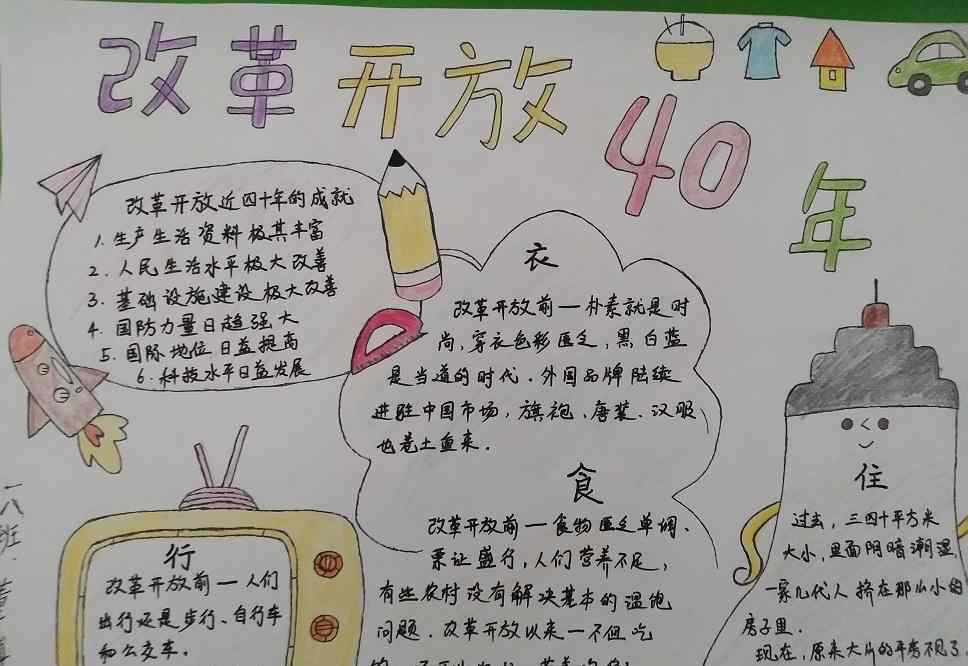 改革开放
40
年
改革开放近四十年的成就
1. 生产生活资料极其丰富
2. 人民生活水平极大改善
3. 基础设施建设极大改善
4. 国防力量日趋强大
5. 国际地位日益提高
6. 科技水平日益发展
衣
改革开放前一朴素就是时
尚，穿衣色彩匮乏，黑白蓝
是当道的时代．外国品牌陆续
进驻中国市场，旗袍、唐装、汉服
也卷土重来．
食
改革开放前一食物匮乏单调、
票证盛行，人们营养不足，
有些农村没有解决基本的温饱
问题．改革开放以来一不但吃
住
过去，三四十平方米
大小，里面阴暗潮湿，
一家几代人挤在那么小的
房子里．
现在，原来大片的平房不见了
行
改革开放前一人们
出行还是步行、自行车
和公交车．
八班